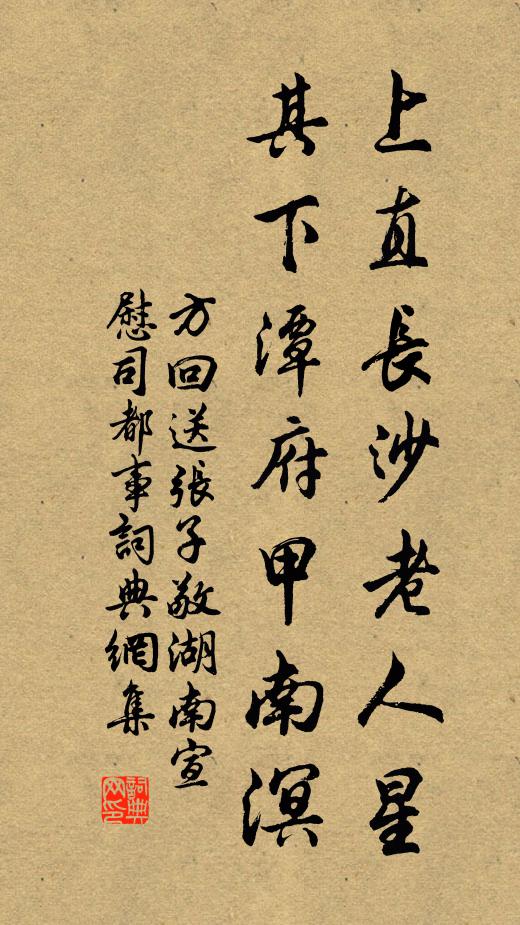 上直長沙老人星
其下潭府甲南溟
方回送張子敬湖南宣
慰司都事詞典網集
詞典
网印